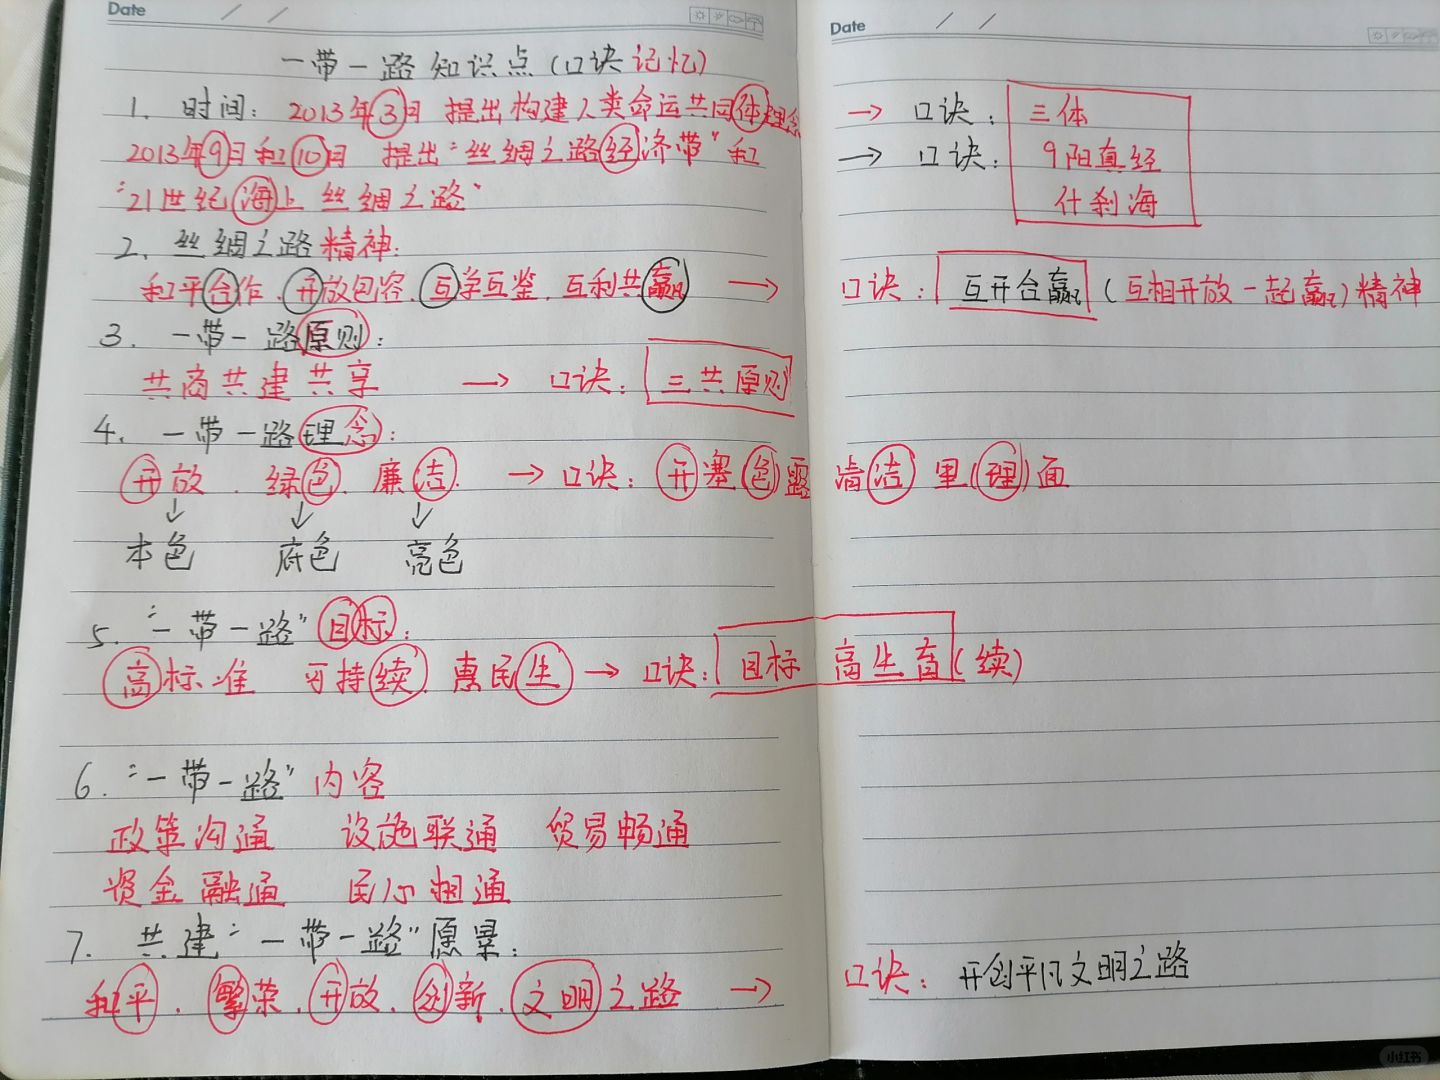 Date / /
Date / /
一带一路知识点(口诀记忆)
1. 时间: 2013年3月 提出构建人类命运共同体理念 → 口诀: 三体
2013年9月和10月 提出"丝绸之路经济带"和 → 口诀: 9阳真经
"21世纪海上丝绸之路" 什刹海
2. 丝绸之路精神:
和平合作、开放包容、互学互鉴、互利共赢 → 口诀: 互开合赢 (互相开放一起赢) 精神
3. 一带一路原则:
共商共建共享 → 口诀: 三共原则
4. 一带一路理念:
开放、绿色、廉洁. → 口诀: 开塞色露 清洁里(理)面
↓ ↓ ↓
本色 底色 亮色
5. "一带一路"目标:
高标准 可持续、惠民生 → 口诀: 目标 高生育(续)
6. "一带一路"内容
政策沟通 设施联通 贸易畅通
资金融通 民心相通
7. 共建"一带一路"愿景:
和平、繁荣、开放、创新、文明之路 → 口诀: 开创平凡文明之路
小红书